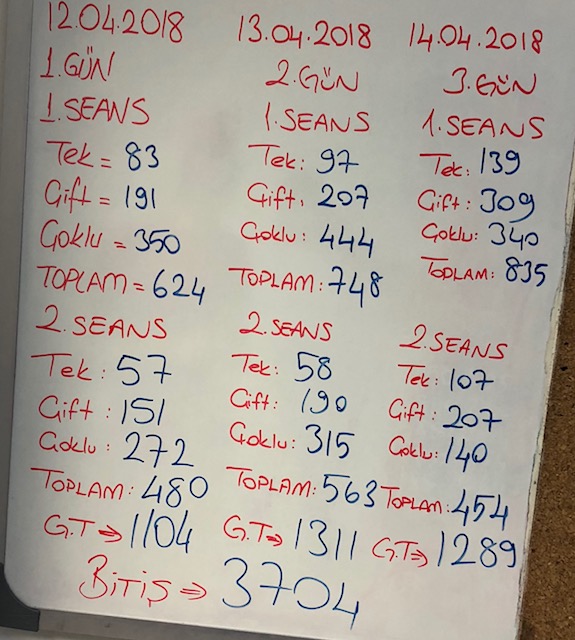 12.04.2018
1.GÜN
1.SEANS
Tek = 83
Çift = 191
Çoklu = 350
TOPLAM = 624
2.SEANS
Tek: 57
Çift: 151
Çoklu: 272
TOPLAM: 480
G.T⇒ 1104
13.04.2018
2.GÜN
1.SEANS
Tek: 97
Çift: 207
Çoklu: 444
TOPLAM: 748
2.SEANS
Tek: 58
Çift: 190
Çoklu: 315
TOPLAM: 563
G.T⇒ 1311
14.04.2018
3.GÜN
1.SEANS
Tek: 139
Çift: 309
Çoklu: 340
TOPLAM: 835
2.SEANS
Tek: 107
Çift: 207
Çoklu: 140
TOPLAM: 454
G.T⇒ 1289
BİTİŞ ⇒ 3704